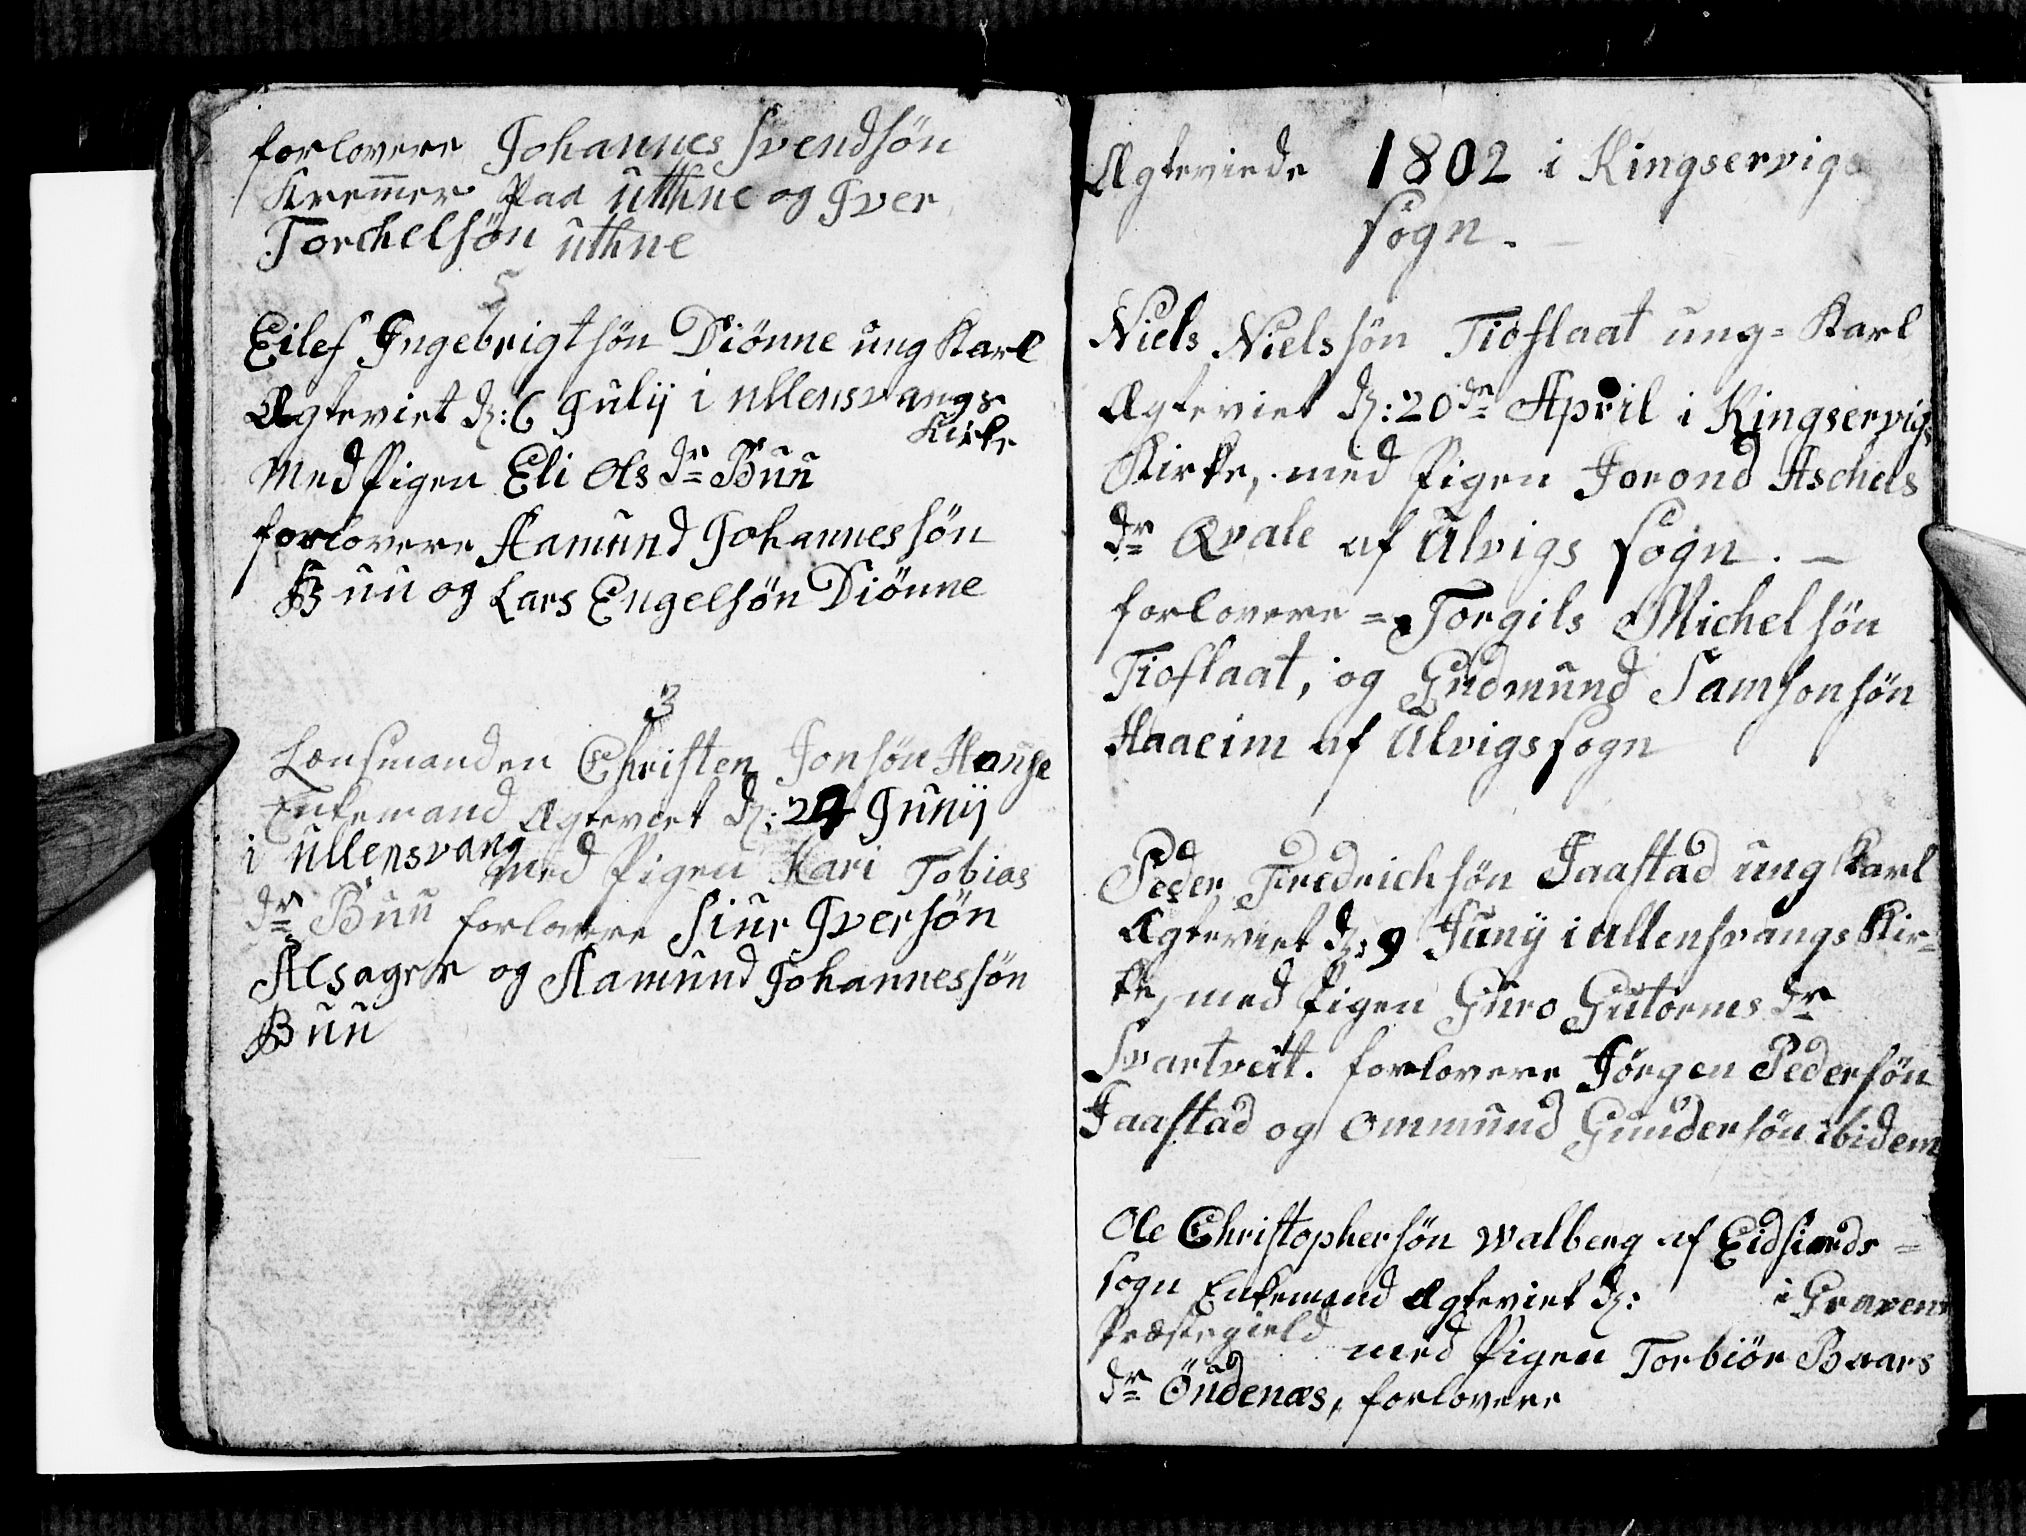 forlovere Johannes Svendsön
Kremmer paa Utthne og Iver
Torchelsön Uthne
5
Eilef Ingebrigtsön Diönne ung Karl
Ægteviet d: 6 Julij i Ullensvangs
Kirke
med Pigen Eli Ols dr Buu
forlovere Aamund Johannessön
Buu og Lars Engelsön Diönne
3
Lensmanden Christen Jonsön Hauge
Enkemand Ægteviet d: 24 Junij
i Ullensvang
med Pigen Kari Tobias
dr Buu forlovere Siur Iversön
Alsager og Aamund Johannessön
Buu
Ægteviede 1802 i Kingservigs
Sogn.
Niels Nielssön Tioflaat ung-Karl
Ægteviet d: 20de April i Kingservigs
Kirke, med Pigen Jorond Aschels
dr Qvale af Ulvigs Sogn. —
forlovere = Torgils Michelsön
Tioflaat, og Gudmund Samsonsön
Haaeim af Ulvigs sogn
Peder Fredrichsön Jaastad ung Karl
Ægteviet d: 9 Juny i Ullensvangs Kir-
ke, med Pigen Guro Gutorms dr
Svartveit. forlovere Jörgen Pedersön
Jaastad og Ommund Gundersön ibidem
Ole Christophersön Walberg af Eidfiords-
sogn Enkemand Ægteviet d: i Gravens
Præstegield
med Pigen Torbiör Baars
dr Öudenæs, forlovere